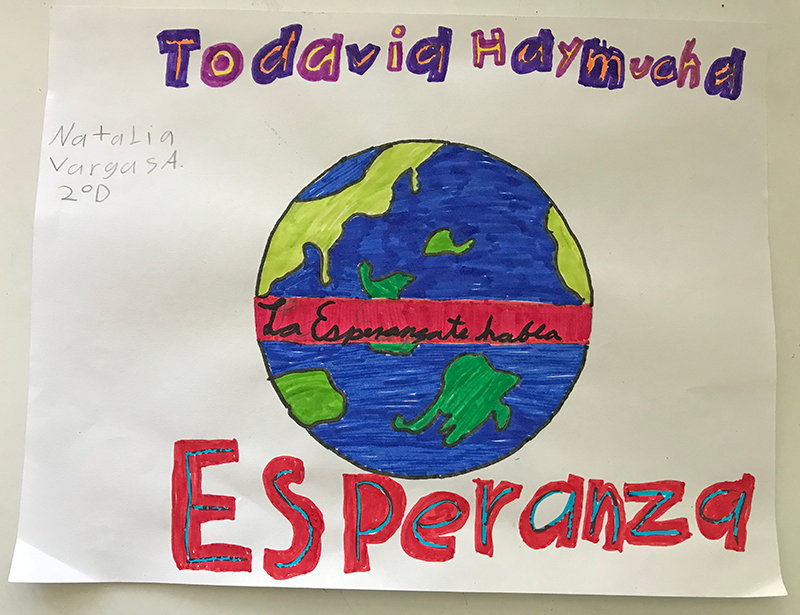 Todavia Hay mucha
Natalia
Vargas A.
2°D
La Esperanza te habla
Esperanza